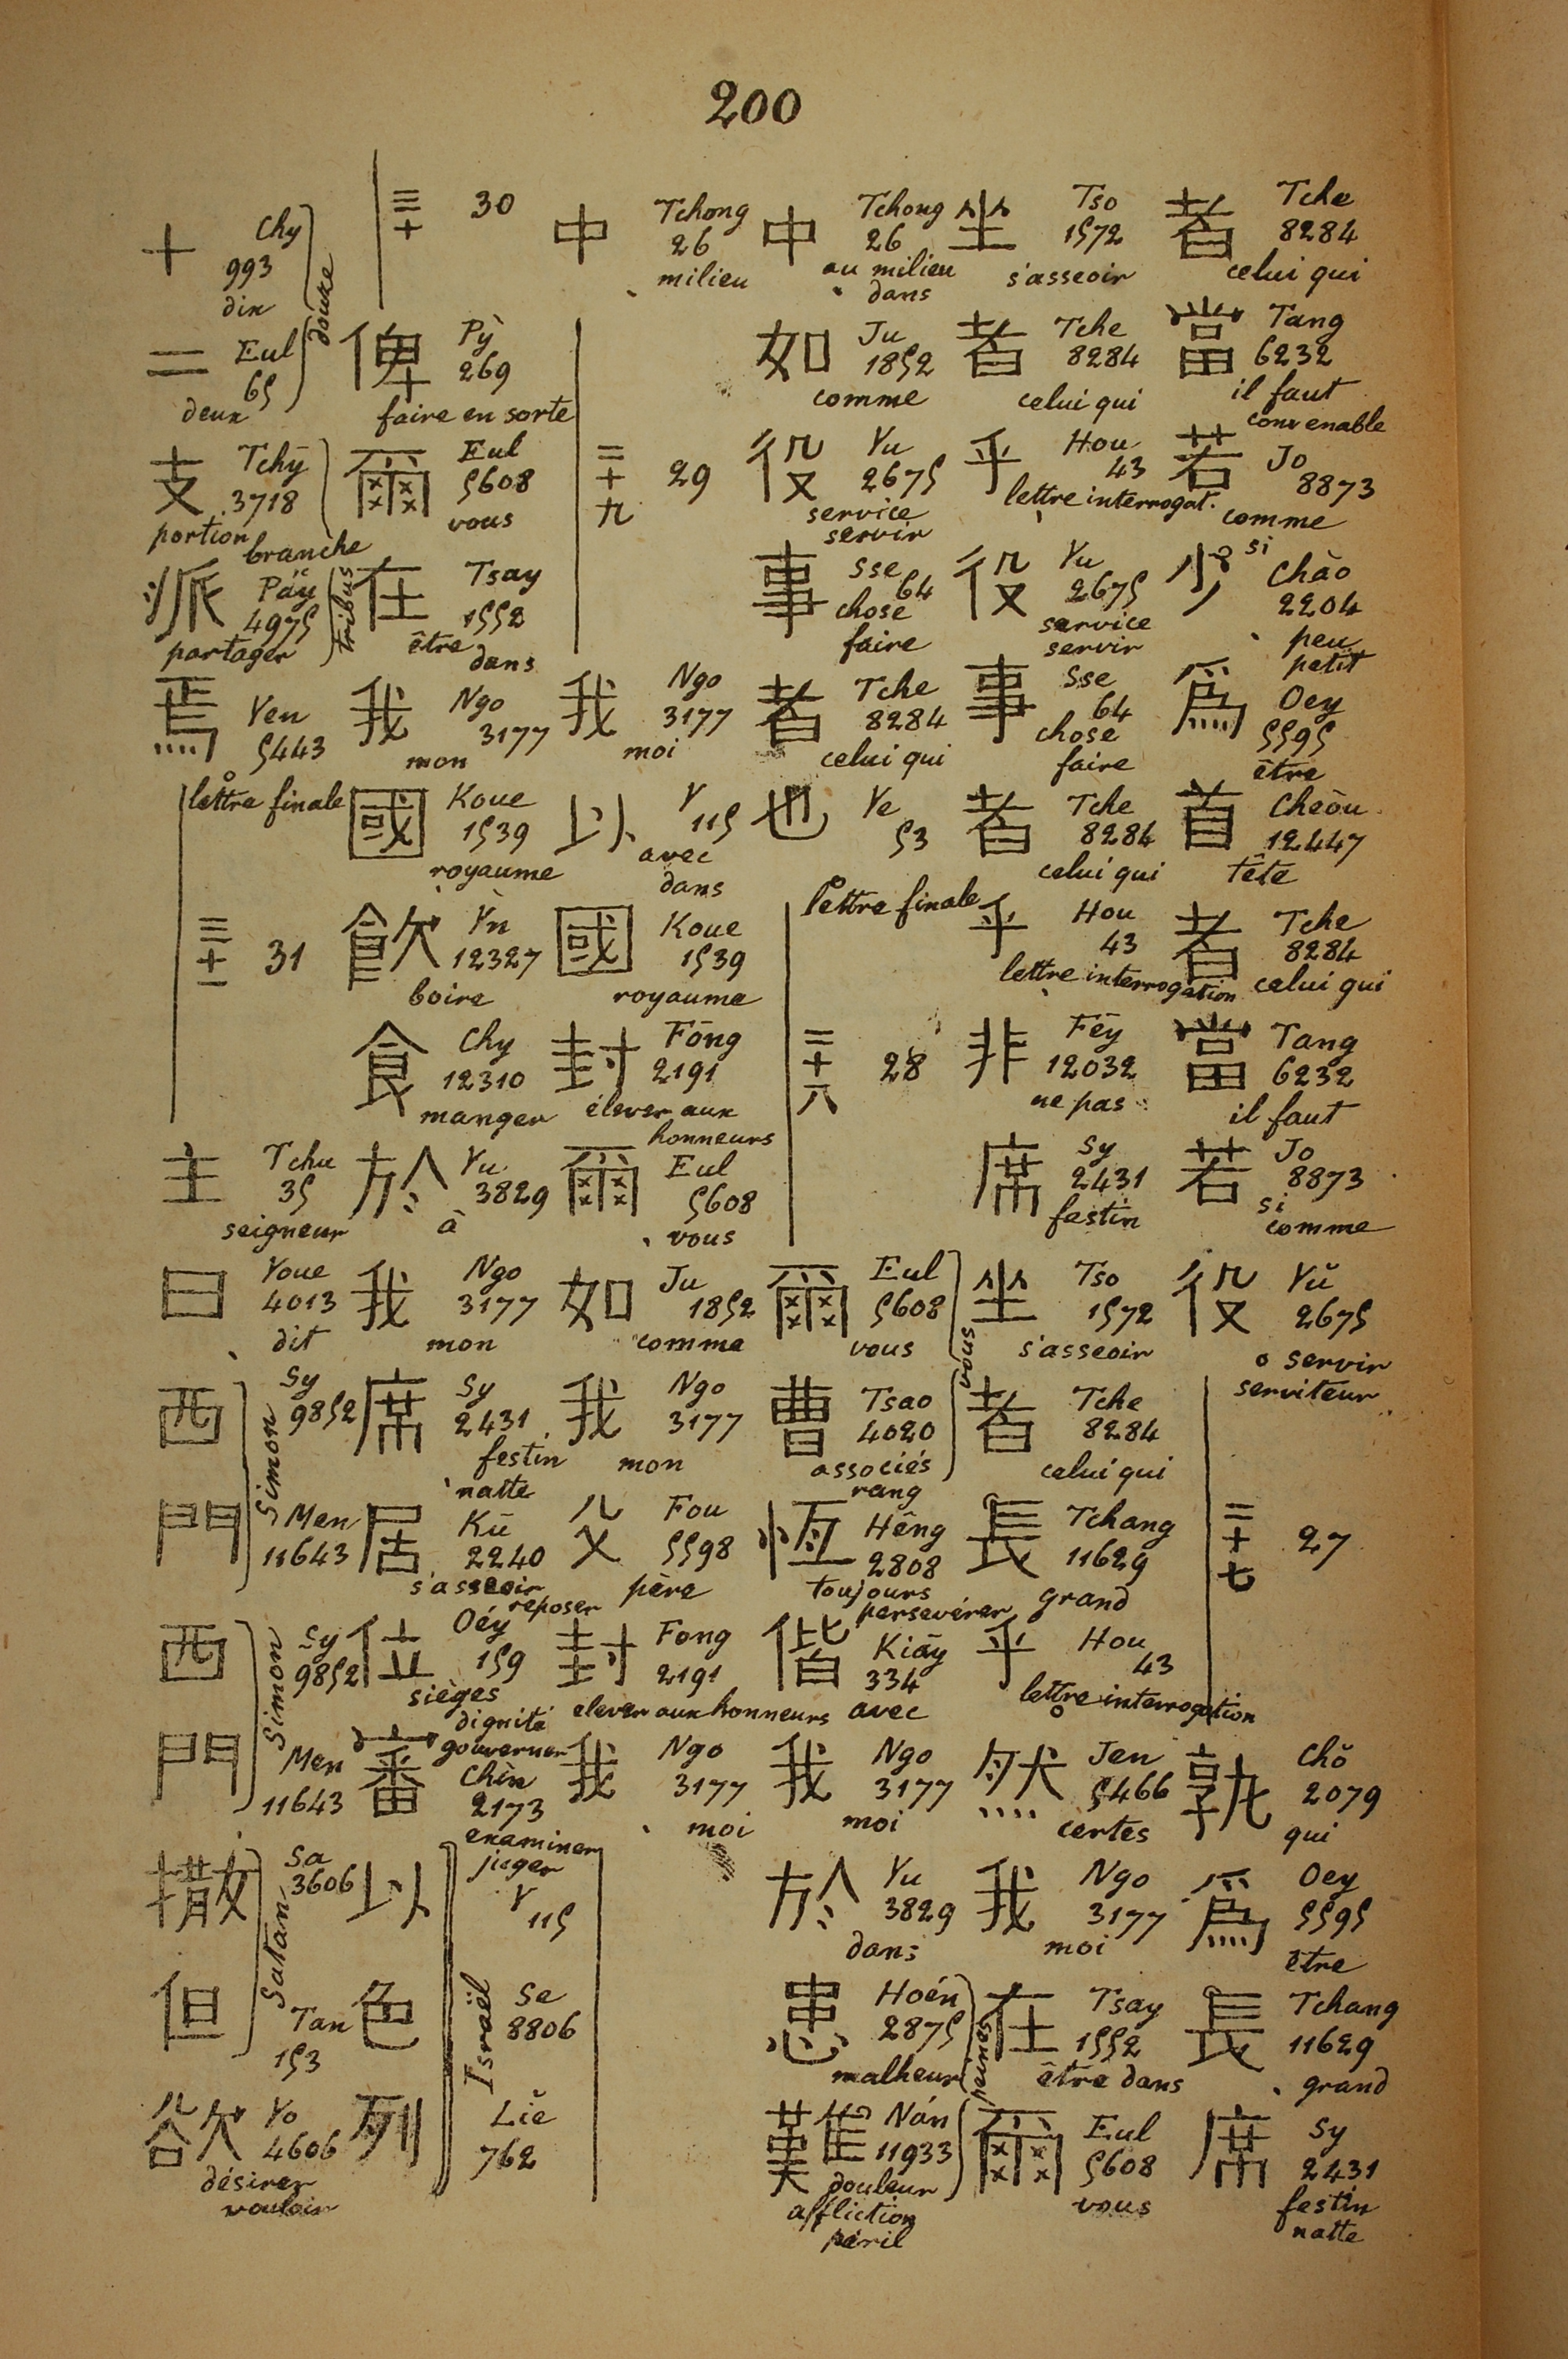 200
者 Tche 8284 celui qui
當 Tang 6232 il faut convenable
若 Jo 8873 comme si
少 Chào 2204 peu petit
為 Oey 5595 être
首 Cheòu 12447 tête
者 Tche 8284 celui qui
當 Tang 6232 il faut
若 Jo 8873 si comme
役 Yŭ 2675 servir serviteur
二十七 27
孰 Chŏ 2079 qui
為 Oey 5595 être
長 Tchang 11629 grand
席 Sy 2431 festin natte
坐 Tso 1572 s'asseoir
者 Tche 8284 celui qui
乎 Hou 43 lettre interrogat.
役 Yu 2675 service servir
事 Sse 64 chose faire
者 Tche 8284 celui qui
乎 Hou 43 lettre interrogation
非 Fēy 12032 ne pas
席 Sy 2431 festin
坐 Tso 1572 s'asseoir
者 Tche 8284 celui qui
長 Tchang 11629 grand
乎 Hou 43 lettre interrogation
然 Jen 5466 certes
我 Ngo 3177 moi
在 Tsay 1552 être dans
爾 Eul 5608 vous
中 Tchong 26 au milieu dans
如 Ju 1852 comme
役 Yu 2675 service servir
事 Sse 64 chose faire
者 Tche 8284 celui qui
也 Ye 53 lettre finale
二十八 28
爾 Eul 5608 vous
曹 Tsao 4020 associés rang
vous
恆 Hêng 2808 toujours persevérer
偕 Kiāy 334 avec
我 Ngo 3177 moi
於 Yu 3829 dans
患 Hoén 2875 malheur
難 Nán 11933 douleur affliction péril
peines
中 Tchong 26 milieu
二十九 29
我 Ngo 3177 moi
以 Y 115 avec dans
國 Koue 1539 royaume
封 Fōng 2191 élever aux honneurs
爾 Eul 5608 vous
如 Ju 1852 comme
我 Ngo 3177 mon
父 Fou 5598 père
封 Fong 2191 elever aux honneurs
我 Ngo 3177 moi
三十 30
俾 Pỳ 269 faire en sorte
爾 Eul 5608 vous
在 Tsay 1552 être dans
我 Ngo 3177 mon
國 Koue 1539 royaume
飲 Ỳn 12327 boire
食 Chy 12310 manger
於 Yu 3829 à
我 Ngo 3177 mon
席 Sy 2431 festin natte
居 Kū 2240 s'asseoir reposer
位 Oéy 159 sièges dignité gouverner
審 Chèn 2173 examiner juger
以 Y 115
色 Se 8806
列 Liĕ 762
Israël
十 Chy 993 dix
二 Eul 65 deux
douze
支 Tchȳ 3718 portion branche
派 Páy 4975 partager
tribus
焉 Yen 5443 lettre finale
三十一 31
主 Tchu 35 seigneur
曰 Youe 4013 dit
西 Sy 9852
門 Men 11643
Simon
西 Sy 9852
門 Men 11643
Simon
撒 Sa 3606
但 Tan 153
Satan
欲 Yo 4606 désirer vouloir